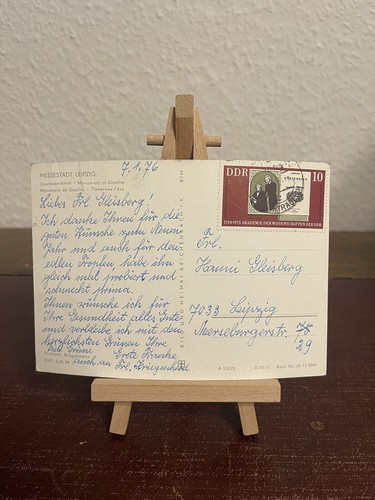 7.1.76
MESSESTADT LEIPZIG
Goethedenkmal · Monument of Goethe
Monument de Goethe
Liebes Frl. Gleisberg!
Ich danke Ihnen für die
guten Wünsche zum Neuen
Jahr und auch für den
edlen Tropfen habe ihn
gleich mal probiert und
schmeckt prima.
Ihnen wünsche ich für
Ihre Gesundheit alles Gute
und verbleibe ich mit den
herzlichsten Grüssen Ihre
Grete Franke
auch an Frl.
BILD UND HEIMAT REICHENBACH I. V.
DDR
10
1700-1975 AKADEMIE DER WISSENSCHAFTEN DER DDR
Frl.
Hanni Gleisberg
7033 Leipzig
Merseburgerstr.
29